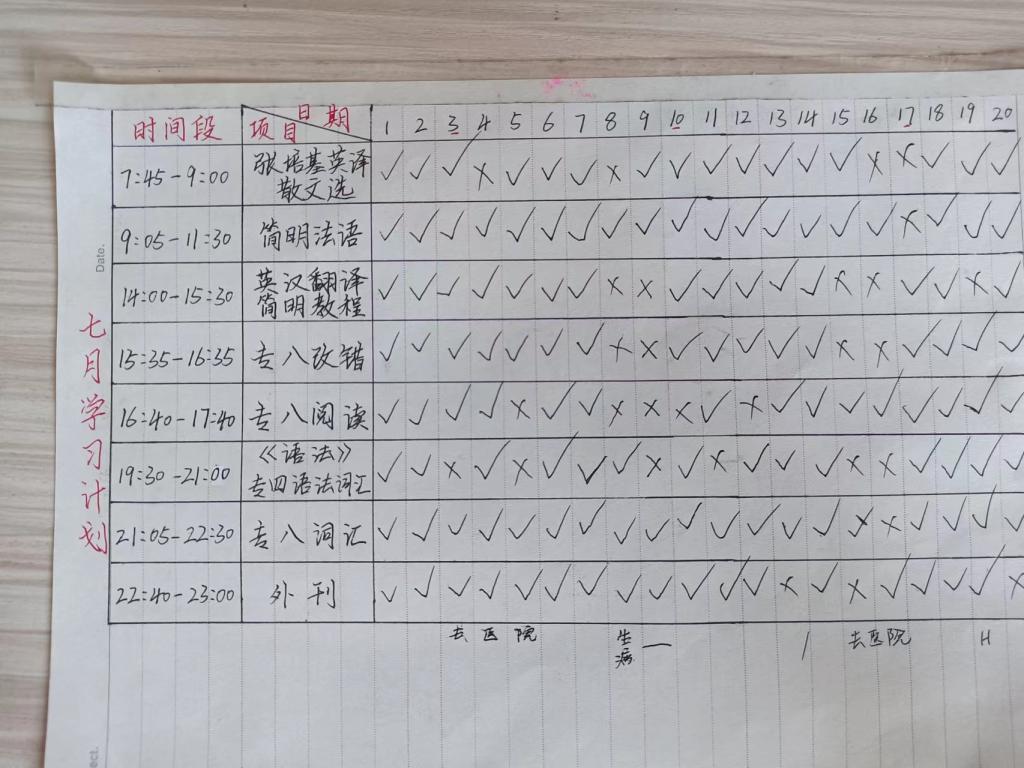 时间段 日期 项目 1 2 3 4 5 6 7 8 9 10 11 12 13 14 15 16 17 18 19 20
7:45-9:00 张培基英译散文选 ✓ ✓ ✓ × ✓ ✓ ✓ × ✓ ✓ ✓ ✓ ✓ ✓ ✓ × × ✓ ✓ ✓
9:05-11:30 简明法语 ✓ ✓ ✓ ✓ ✓ ✓ ✓ ✓ ✓ ✓ ✓ ✓ ✓ ✓ ✓ ✓ × ✓ ✓ ✓
14:00-15:30 英汉翻译简明教程 ✓ ✓ ✓ ✓ ✓ ✓ ✓ × × ✓ ✓ ✓ ✓ ✓ × × ✓ ✓ × ✓
15:35-16:35 专八改错 ✓ ✓ ✓ ✓ ✓ ✓ ✓ × × ✓ ✓ ✓ ✓ ✓ × × ✓ ✓ ✓ ✓
16:40-17:40 专八阅读 ✓ ✓ ✓ ✓ × ✓ ✓ × × × ✓ × ✓ ✓ ✓ ✓ ✓ ✓ ✓ ✓
19:30-21:00 《语法》专四语法词汇 ✓ ✓ × ✓ × ✓ ✓ ✓ × ✓ × ✓ ✓ ✓ × × ✓ ✓ ✓ ✓
21:05-22:30 专八词汇 ✓ ✓ ✓ ✓ ✓ ✓ ✓ ✓ ✓ ✓ ✓ ✓ ✓ ✓ × × ✓ ✓ ✓ ✓
22:40-23:00 外刊 ✓ ✓ ✓ ✓ ✓ ✓ ✓ ✓ ✓ ✓ ✓ ✓ × ✓ × ✓ ✓ ✓ ✓ ×
去医院 生病一 / 去医院 H
七月学习计划
Date.
ect.